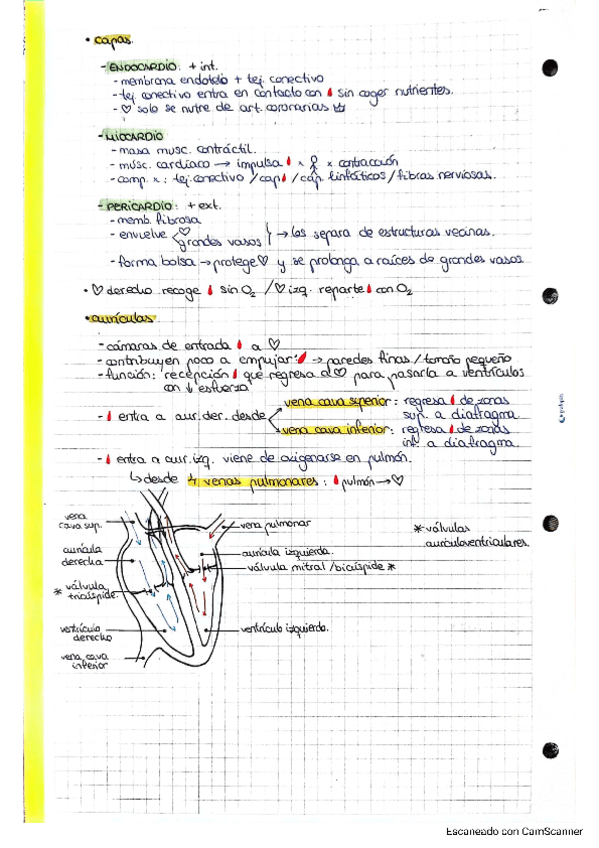 • capas.
- ENDOCARDIO: + int.
- membrana endotelio + tej. conectivo
- tej. conectivo entra en contacto con 🩸 sin coger nutrientes.
- ♡ solo se nutre de art. coronarias
- MIOCARDIO
- masa musc. contráctil.
- músc. cardíaco → impulsa 🩸 x x contracción
- comp. x: tej. conectivo / cap 🩸 / cap. linfáticos / fibras nerviosas.
- PERICARDIO: + ext.
- memb. fibrosa
- envuelve ♡ grandes vasos → los separa de estructuras vecinas.
- forma bolsa → protege ♡ y se prolonga a raíces de grandes vasos
• ♡ derecho recoge 🩸 sin O2 / ♡ izq. reparte 🩸 con O2
• aurículas
- cámaras de entrada 🩸 a ♡
- contribuyen poco a empujar 🩸 → paredes finas / tamaño pequeño
- función: recepción 🩸 que regresa a ♡ para pasarla a ventrículos
con ↓ esfuerzo
- 🩸 entra a aur. der. desde
vena cava superior: regresa 🩸 de zonas
sup. a diafragma
vena cava inferior: regresa 🩸 de zonas
inf. a diafragma.
- 🩸 entra a aur. izq. viene de oxigenarse en pulmón.
↳ desde 4 venas pulmonares: 🩸 pulmón → ♡
vena
cava sup.
aurícula
derecha
* válvula
tricúspide.
ventrículo
derecho
vena cava
inferior
vena pulmonar
aurícula izquierda.
válvula mitral / bicúspide *
ventrículo izquierdo.
* válvulas
auriculoventriculares.
Escaneado con CamScanner